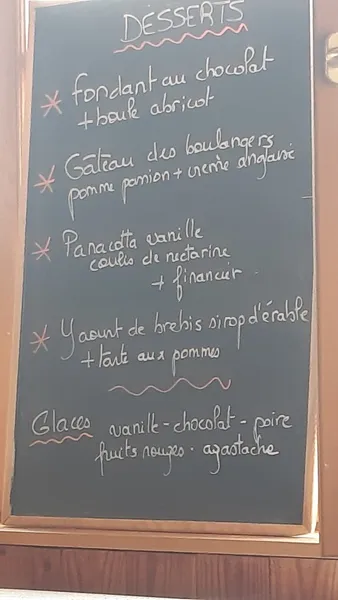 DESSERTS
* fondant au chocolat
+ boule abricot
* Gâteau des boulangers
pomme passion + crème anglaise
* Panacotta vanille
coulis de nectarine
+ financier.
* Yaourt de brebis sirop d'érable
+ tarte aux pommes
Glaces vanille - chocolat - poire
fruits rouges - agastache